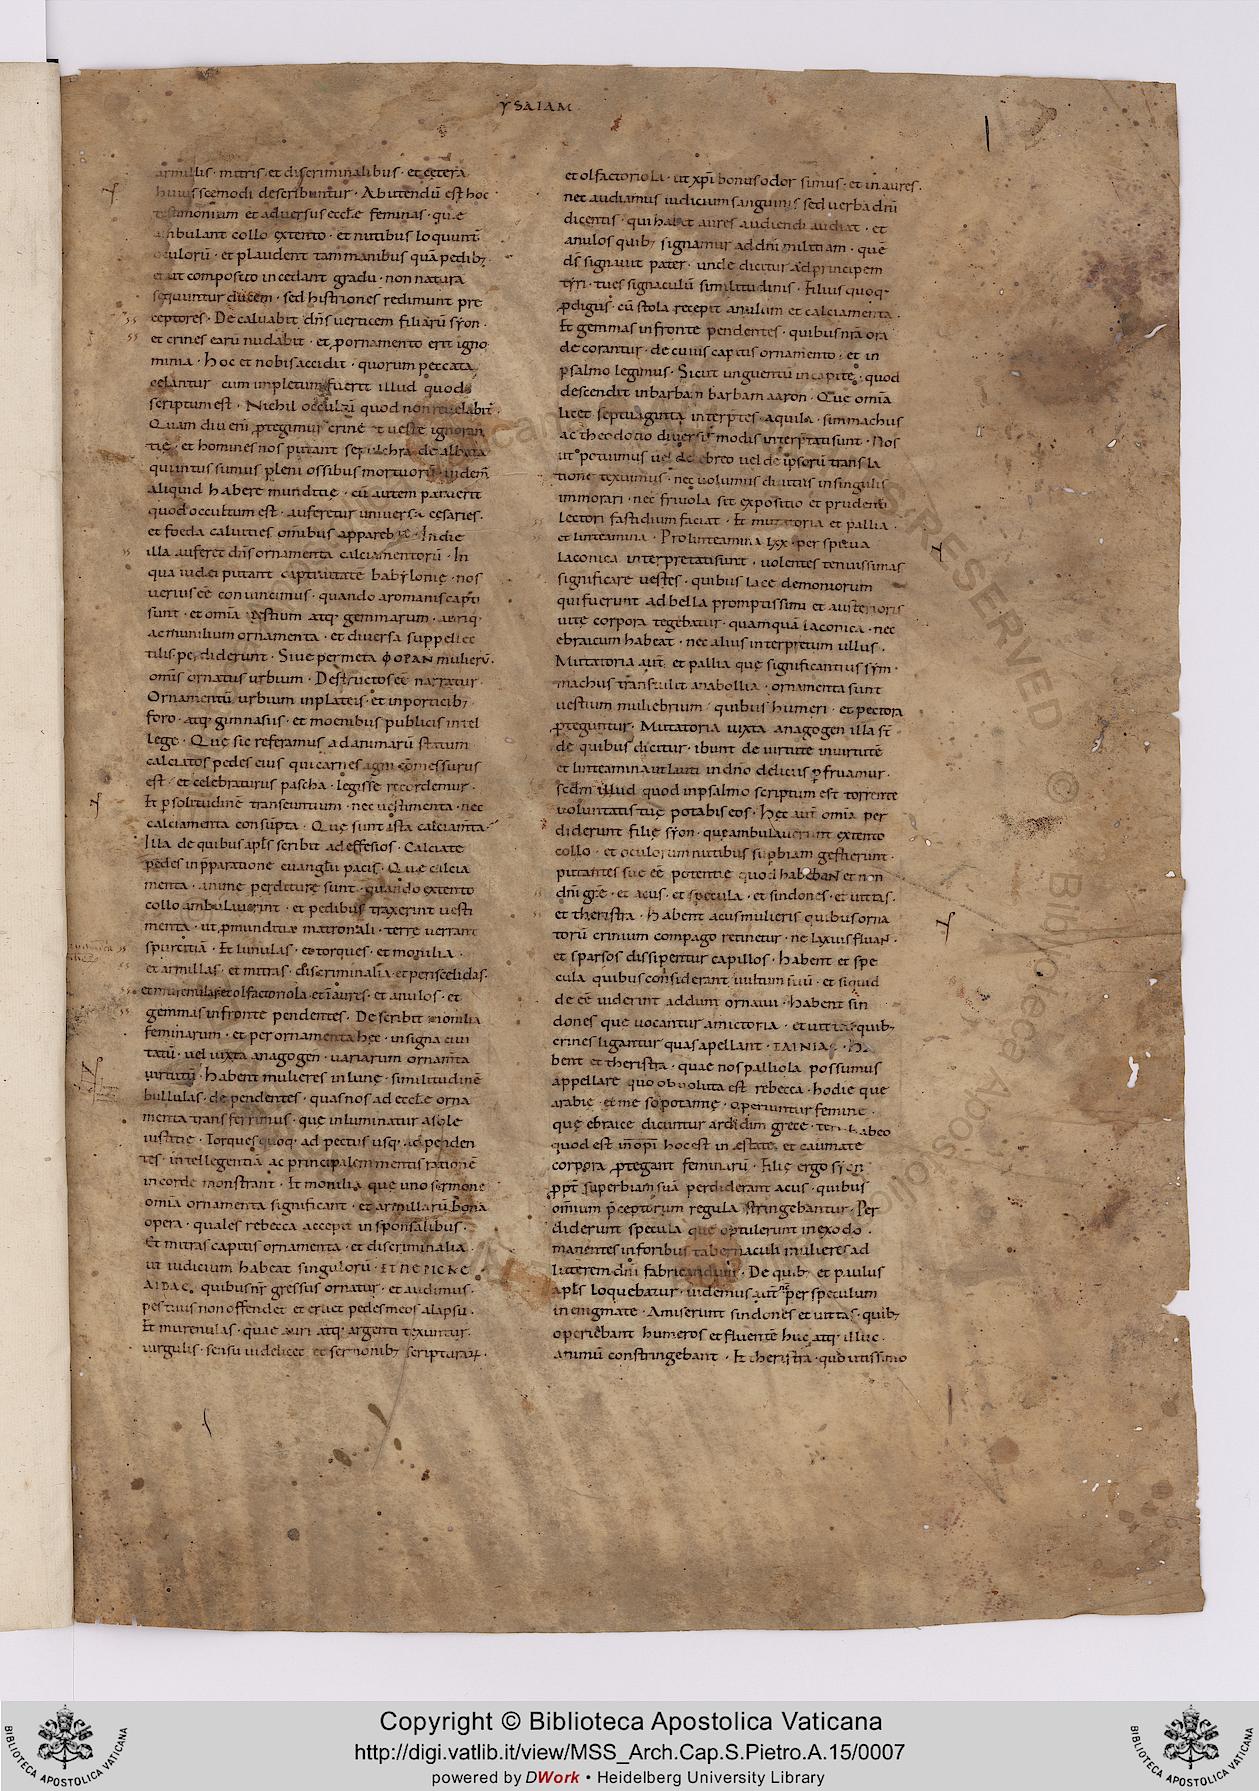 YSAIAM
armillis · mitris · et discriminalibus · et cetera
huiuscemodi describuntur · Abutendū est hoc
testimonium et adversus eccłe feminas · quae
ambulant collo extento · et nutibus loquunt̄
oculorū · et plaudent tam manibus quā pedib;
et ut composito incedant gradu · non naturā
sequuntur ducem · sed histriones redimunt pre
ceptores · Decalvabit dn̄s verticem filiarū syon ·
et crines earū nudabit · et p ornamento erit igno
minia · Hoc et nobis accidit · quorum peccata
celantur cum impletum fuerit illud quod
scriptum est · Nichil occultū quod non reveletabit̄
Quam diu eni protegimur crine et veste ignoran
tię · et homines nos putant sepulchra dealbata
qui intus sumus pleni ossibus mortuorū
aliquid habere munditię · cū autem paruerit
quod occultum est · auferetur universa cęsaries ·
et foeda calvities omībus apparebit · In die
illa auferet dn̄s ornamenta calciamentorū · In
qua iudei putant captivitatē babylonię · nos
verius eē convincimus · quando a romanis capti
sunt · et omīa vestium atq· gemmarum · auriq·
ac munilium ornamenta · et diversa suppellec
tilis perdiderunt · Sive per meta ΦΟΡΑΝ mulierū ·
omīs ornatus urbium · Destructos eē narratur ·
Ornamentū urbium in plateis · et in porticib;
foro · atq· gimnasiis · et moenibus publicis intel
lege · Quę sic referamus ad animarū statum
calciatos pedes eius qui carnes agni comessurus
est · et celebraturus pascha · legisse recordemur ·
Et p solitudinē transeuntium · nec vestimenta · nec
calciamenta consūpta · Quę sunt ista calciam̄ta ·
Illa de quibus apłs scribit ad effesios · Calciate
pedes in p̄paratione euanglii pacis · Quę calcia
menta · animę perditurę sunt · quando extento
collo ambulaverint · et pedibus traxerint vesti
menta · ut p munditiae matronali · terrę verrant
spurcitiā · Et lunulas · et torques · et monilia ·
et armillas · et mitras · discriminalia · et periscelidas ·
et murenulas · et olfactoriola · et inaures · et anulos · et
gemmas in fronte pendentes · Describit monilia
feminarum · et per ornamenta hęc · insignia civi
tatū · vel iuxta anagogen · variarum ornam̄ta
virtutū · Habent mulieres in lunę · similitudinē
bullulas · dependentes · quas nos ad eccłe orna
menta transferimus · quę inluminatur a sole
iustitię · Torques quoq· ad pectus usq· ac penden
tes · intellegentiā ac principalem mentis rationē
in corde monstrant · Et monilia quę uno sermone
omīa ornamenta significant · et armillarū bona
opera · quales rebecca accepit in sponsalibus ·
Et mitras capitis ornamenta · et discriminalia ·
ut iudicium habeat singulorū ·
quibus nr̄ gressus ornatur · et audimus ·
pes tuus non offendet et eruet pedes meos a lapsu ·
Et murenulas · quae auri atq· argenti texuntur ·
virgulis · sensu videlicet et sermonib; scripturarꝝ ·
et olfactoriola · ut xp̄i bonus odor simus · et inaures ·
nec audiamus iudicium sanguinis sed verba dn̄i
dicentis · qui habet aures audiendi audiat · et
anulos quib; signamur ad dn̄i militiam · quē
dś signavit pater · unde dicitur ad principem
tyri · tu es signaculū similitudinis · Filius quoq·
pdigus · cū stola recepit anulum et calciamenta ·
Et gemmas in fronte pendentes · quibus nr̄a ora
decorantur · de cuius capitis ornamento · et in
psalmo legimus · Sicut unguentū in capite · quod
descendit in barbam barbam aaron · Quę omīa
licet septuaginta interp̄tes · aquila · simmachus
ac theodotio diversis modis interp̄tati sunt · Nos
ut potuimus vel de ebreo vel de ipsorū transla
tione texuimus · nec volumus diutius in singulis
immorari · nec frivola sit expositio et prudenti
lectori fastidium faciat · Et mutatoria et pallia ·
et linteamina · Pro linteamina LXX · per spicua
laconica interpretati sunt · volentes tenuissimas
significare vestes · quibus lacedemoniorum
qui fuerunt ad bella promptissimi et austerioris
vitę corpora tegebatur · quamquā laconica · nec
ebraicum habeat · nec alius interpretum ullus ·
Mutatoria aut̄ · et pallia quę significantius sym ·
machus transtulit anabollia · ornamenta sunt
vestium muliebrium · quibus humeri · et pectora
proteguntur · Mutatoria iuxta anagogen illa st̄
de quibus dicitur · ibunt de virtute in virtutē
et linteamina ut lauti in dn̄o deliciis p fruamur ·
scdm illud quod in psalmo scriptum est torrente
voluntatis tuę potabis eos · Hęc aut̄ omīa per
diderunt filię syon · quę ambulaverunt extento
collo · et oculorum nutibus supbiam gestierunt ·
putantes suę eē potentię quod habebant et non
dn̄i grę · et acus · et specula · et sindones · et vittas ·
et theristra · Habent acus mulieris quibus orna
torū crinium compago retinetur · ne laxius fluant ·
et sparsos dissipentur capillos · Habent et spe
cula quibus considerant vultum suū · et siquid
deeē viderint addunt ornatui · Habent sin
dones quę vocantur amictoria · et vittas quib;
crines ligantur quas apellant · TAINIAC · Ha
bent et theristra · quae nos palliola possumus
appellare quo obvoluta est rebecca · hodie quę
arabię · et mesopotamię · operiuntur feminę ·
quę ebraice dicuntur ardidim grece ·
quod est in opī hoc est in ęstate · et caumate
corpora protegant feminarū · Filię ergo syon
ppt̄ superbiam suā perdiderant acus · quibus
omīum p̄ceptorum regula stringebantur · Per
diderunt specula quę optulerunt in exodo ·
manentes in foribus tabernaculi mulieres ad
luterem dn̄i fabricandum · De quib; et paulus
apłs loquebatur · videmus aut̄ nc̄ per speculum
in enigmate · Amiserunt sindones et vittas · quib;
operiebant humeros et fluente huc atq· illuc ·
animū constringebant · Et theristra · quo utissimo
Copyright © Biblioteca Apostolica Vaticana
http://digi.vatlib.it/view/MSS_Arch.Cap.S.Pietro.A.15/0007
powered by DWork • Heidelberg University Library
BIBLIOTECA APOSTOLICA VATICANA
BIBLIOTECA APOSTOLICA VATICANA